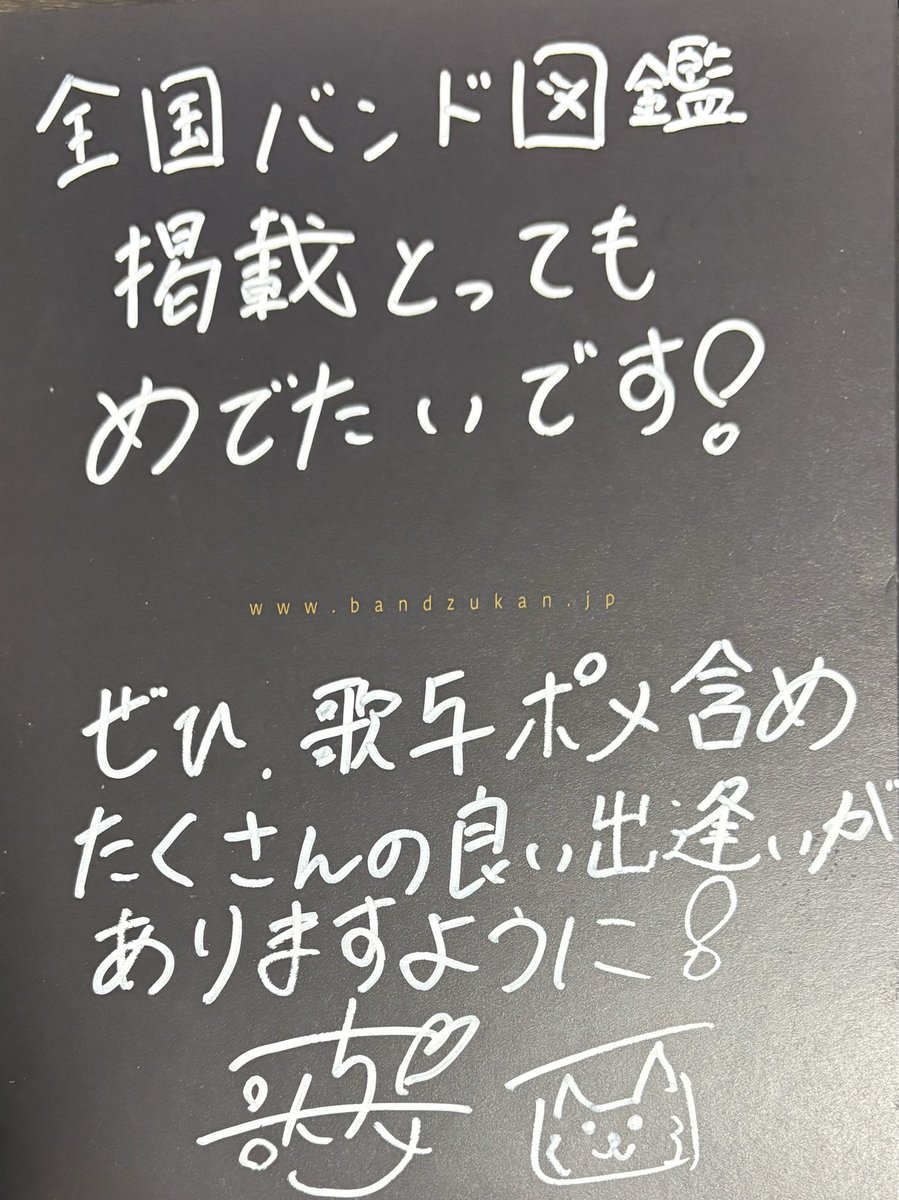 全国バンド図鑑
掲載とっても
めでたいです!
www.bandzukan.jp
ぜひ.歌与ポメ含め
たくさんの良い出逢いが
ありますように!